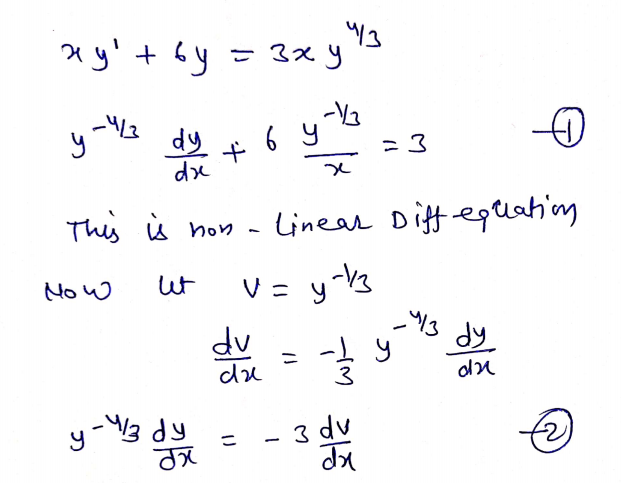 xy' + 6y = 3xy^{4/3}
y^{-4/3} dy/dx + 6 y^{-1/3}/x = 3 —①
This is non-linear Diff equation
Now let V = y^{-1/3}
dv/dx = -1/3 y^{-4/3} dy/dx
y^{-4/3} dy/dx = -3 dv/dx —②